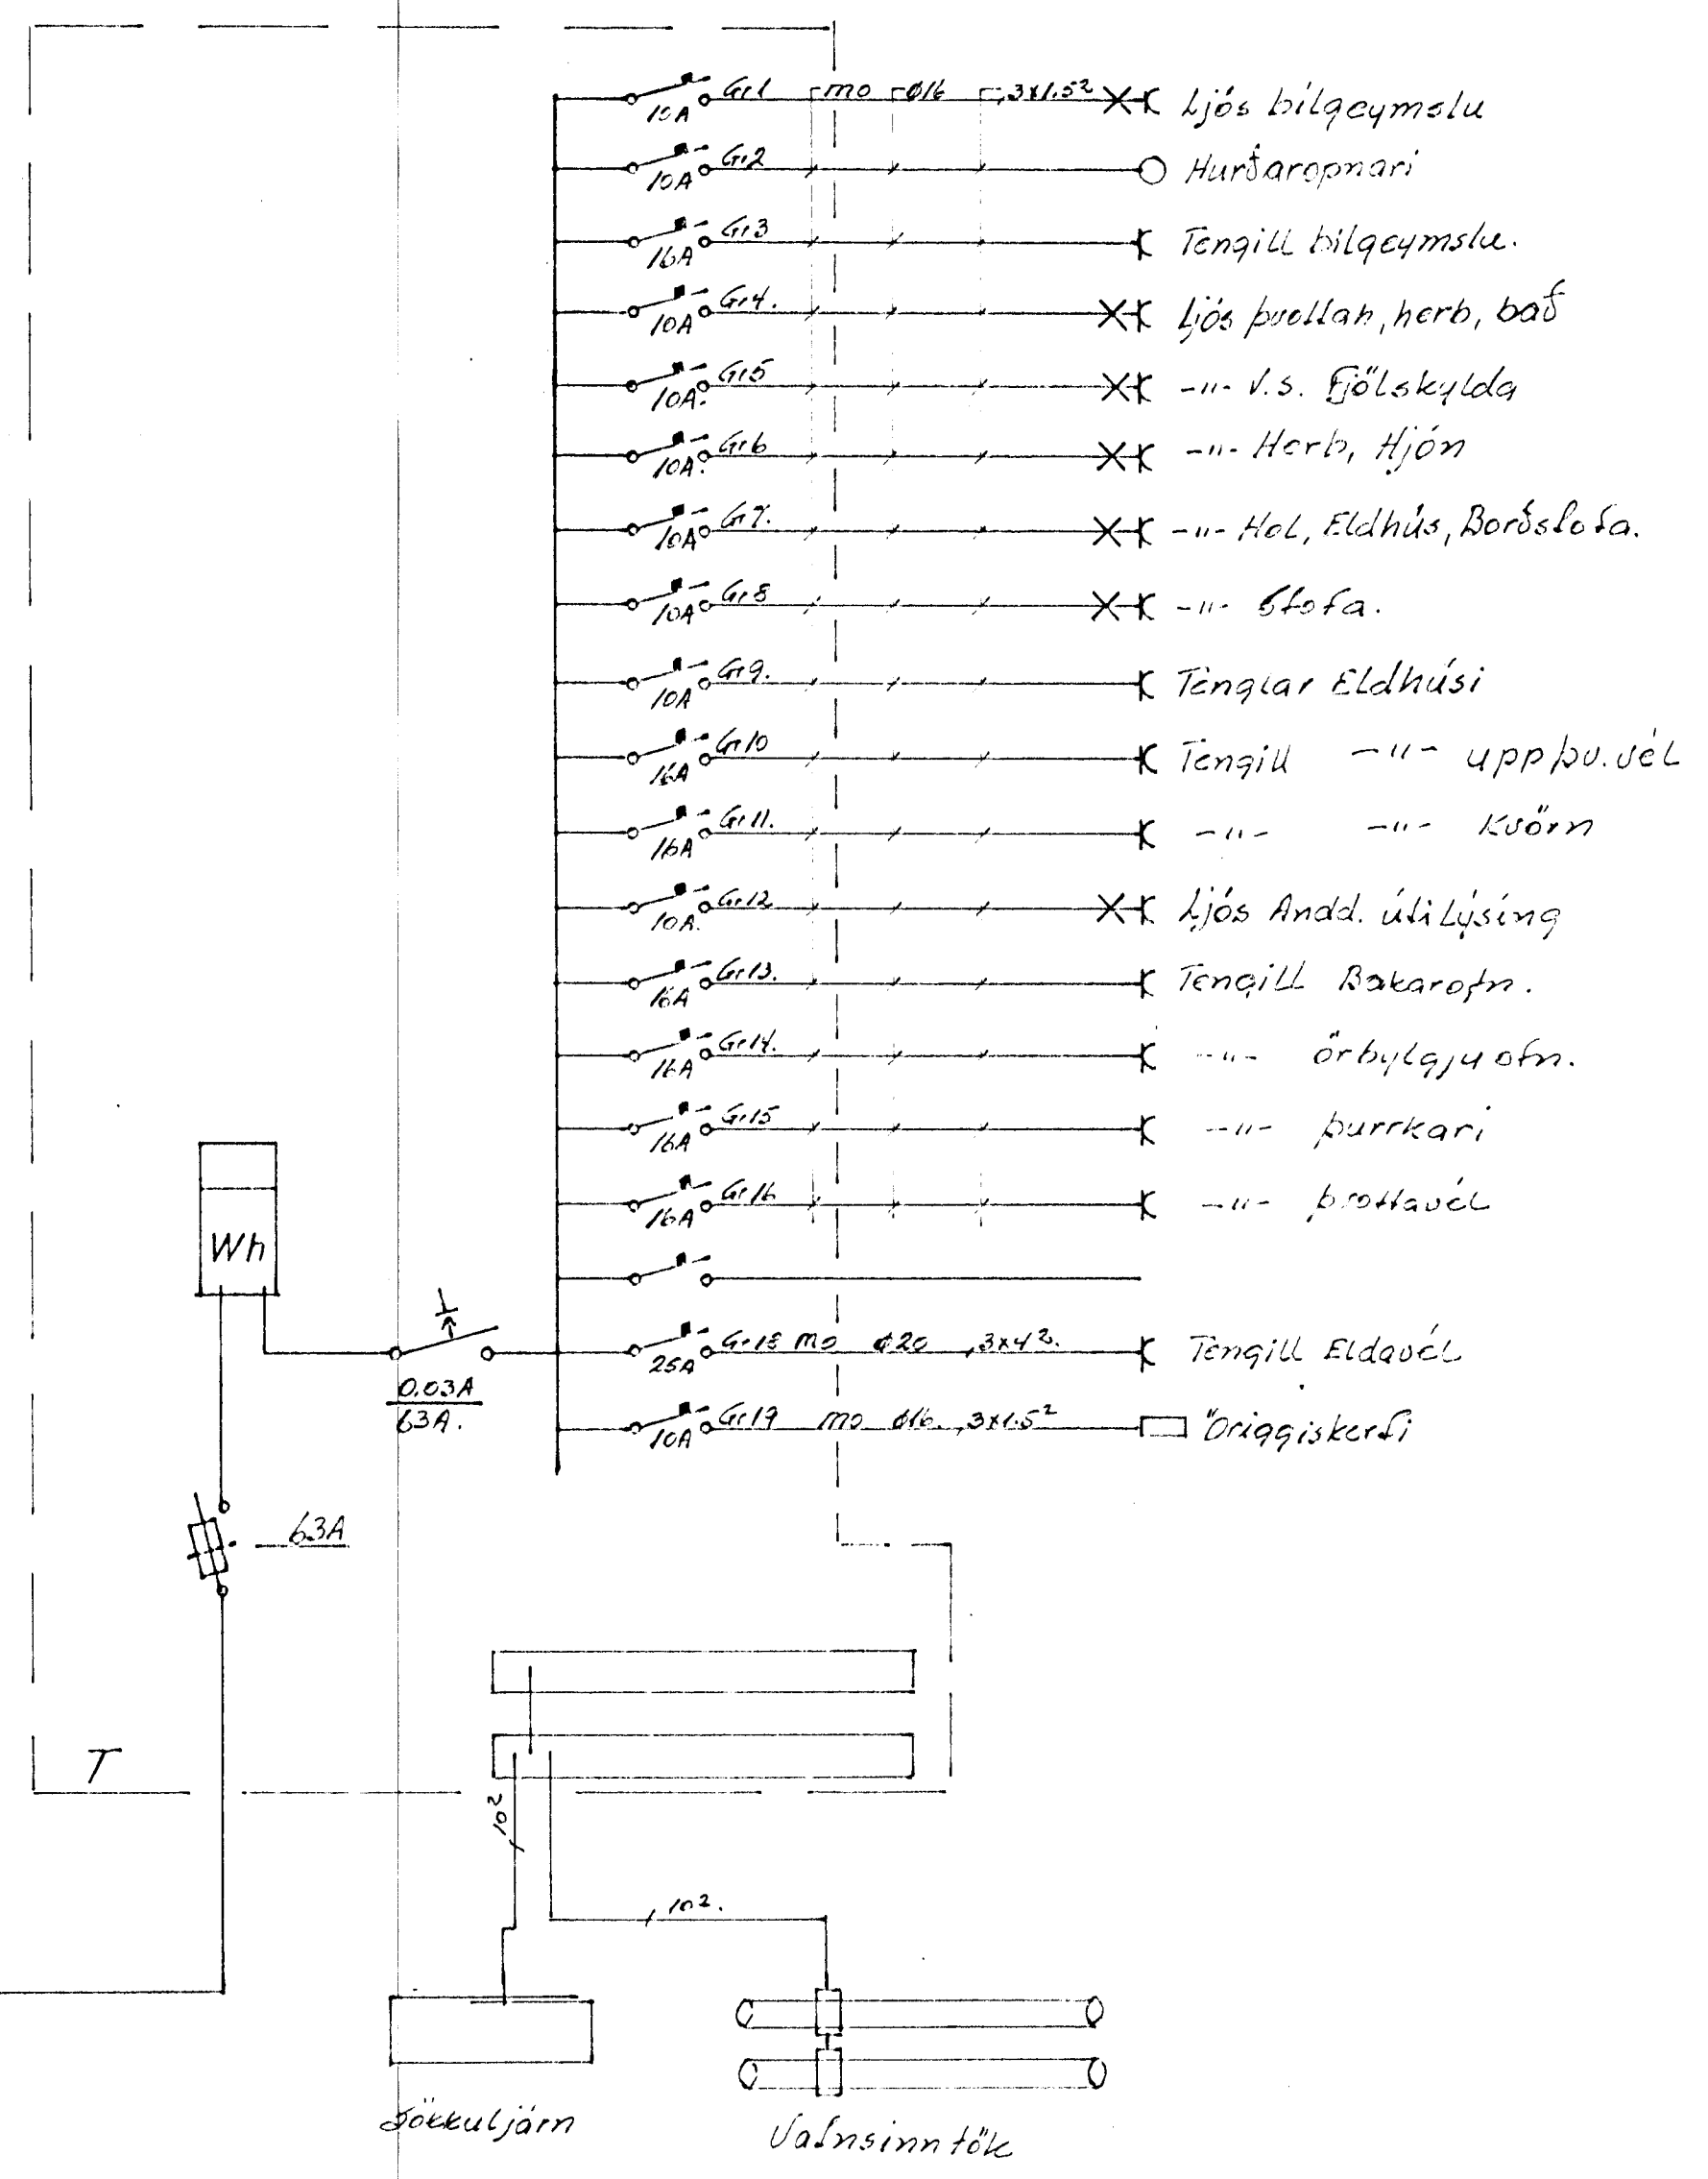 Gr1 mo ø16 3x1.5² Ljós bílgeymslu
10A
Gr2 Hurðaropnari
10A
Gr3 Tengill bílgeymslu.
16A
Gr4. Ljós þvottah, herb, bað
10A
Gr5 -"- V.S. Fjölskylda
10A.
Gr6 -"- Herb, Hjón
10A.
Gr7. -"- Hol, Eldhús, Borðstofa.
10A
Gr8 -"- Stofa.
10A
Gr9. Tenglar Eldhúsi
10A
Gr10 Tengill -"- uppþv.vél
16A
Gr11. -"- -"- Kvörn
16A
Gr12 Ljós Andd. útilýsing
10A.
Gr13. Tengill Bakarofn.
16A
Gr14. -"- örbylgjuofn.
16A
Gr15 -"- þurrkari
16A
Gr16 -"- þvottavél
16A
Wh
Gr18 mo ø20 3x4². Tengill Eldavél
25A
0.03A
63A.
Gr19 mo ø16. 3x1.5² Öriggiskerfi
10A
63A
T
10²
10².
Sökkuljárn
Vatnsinntök